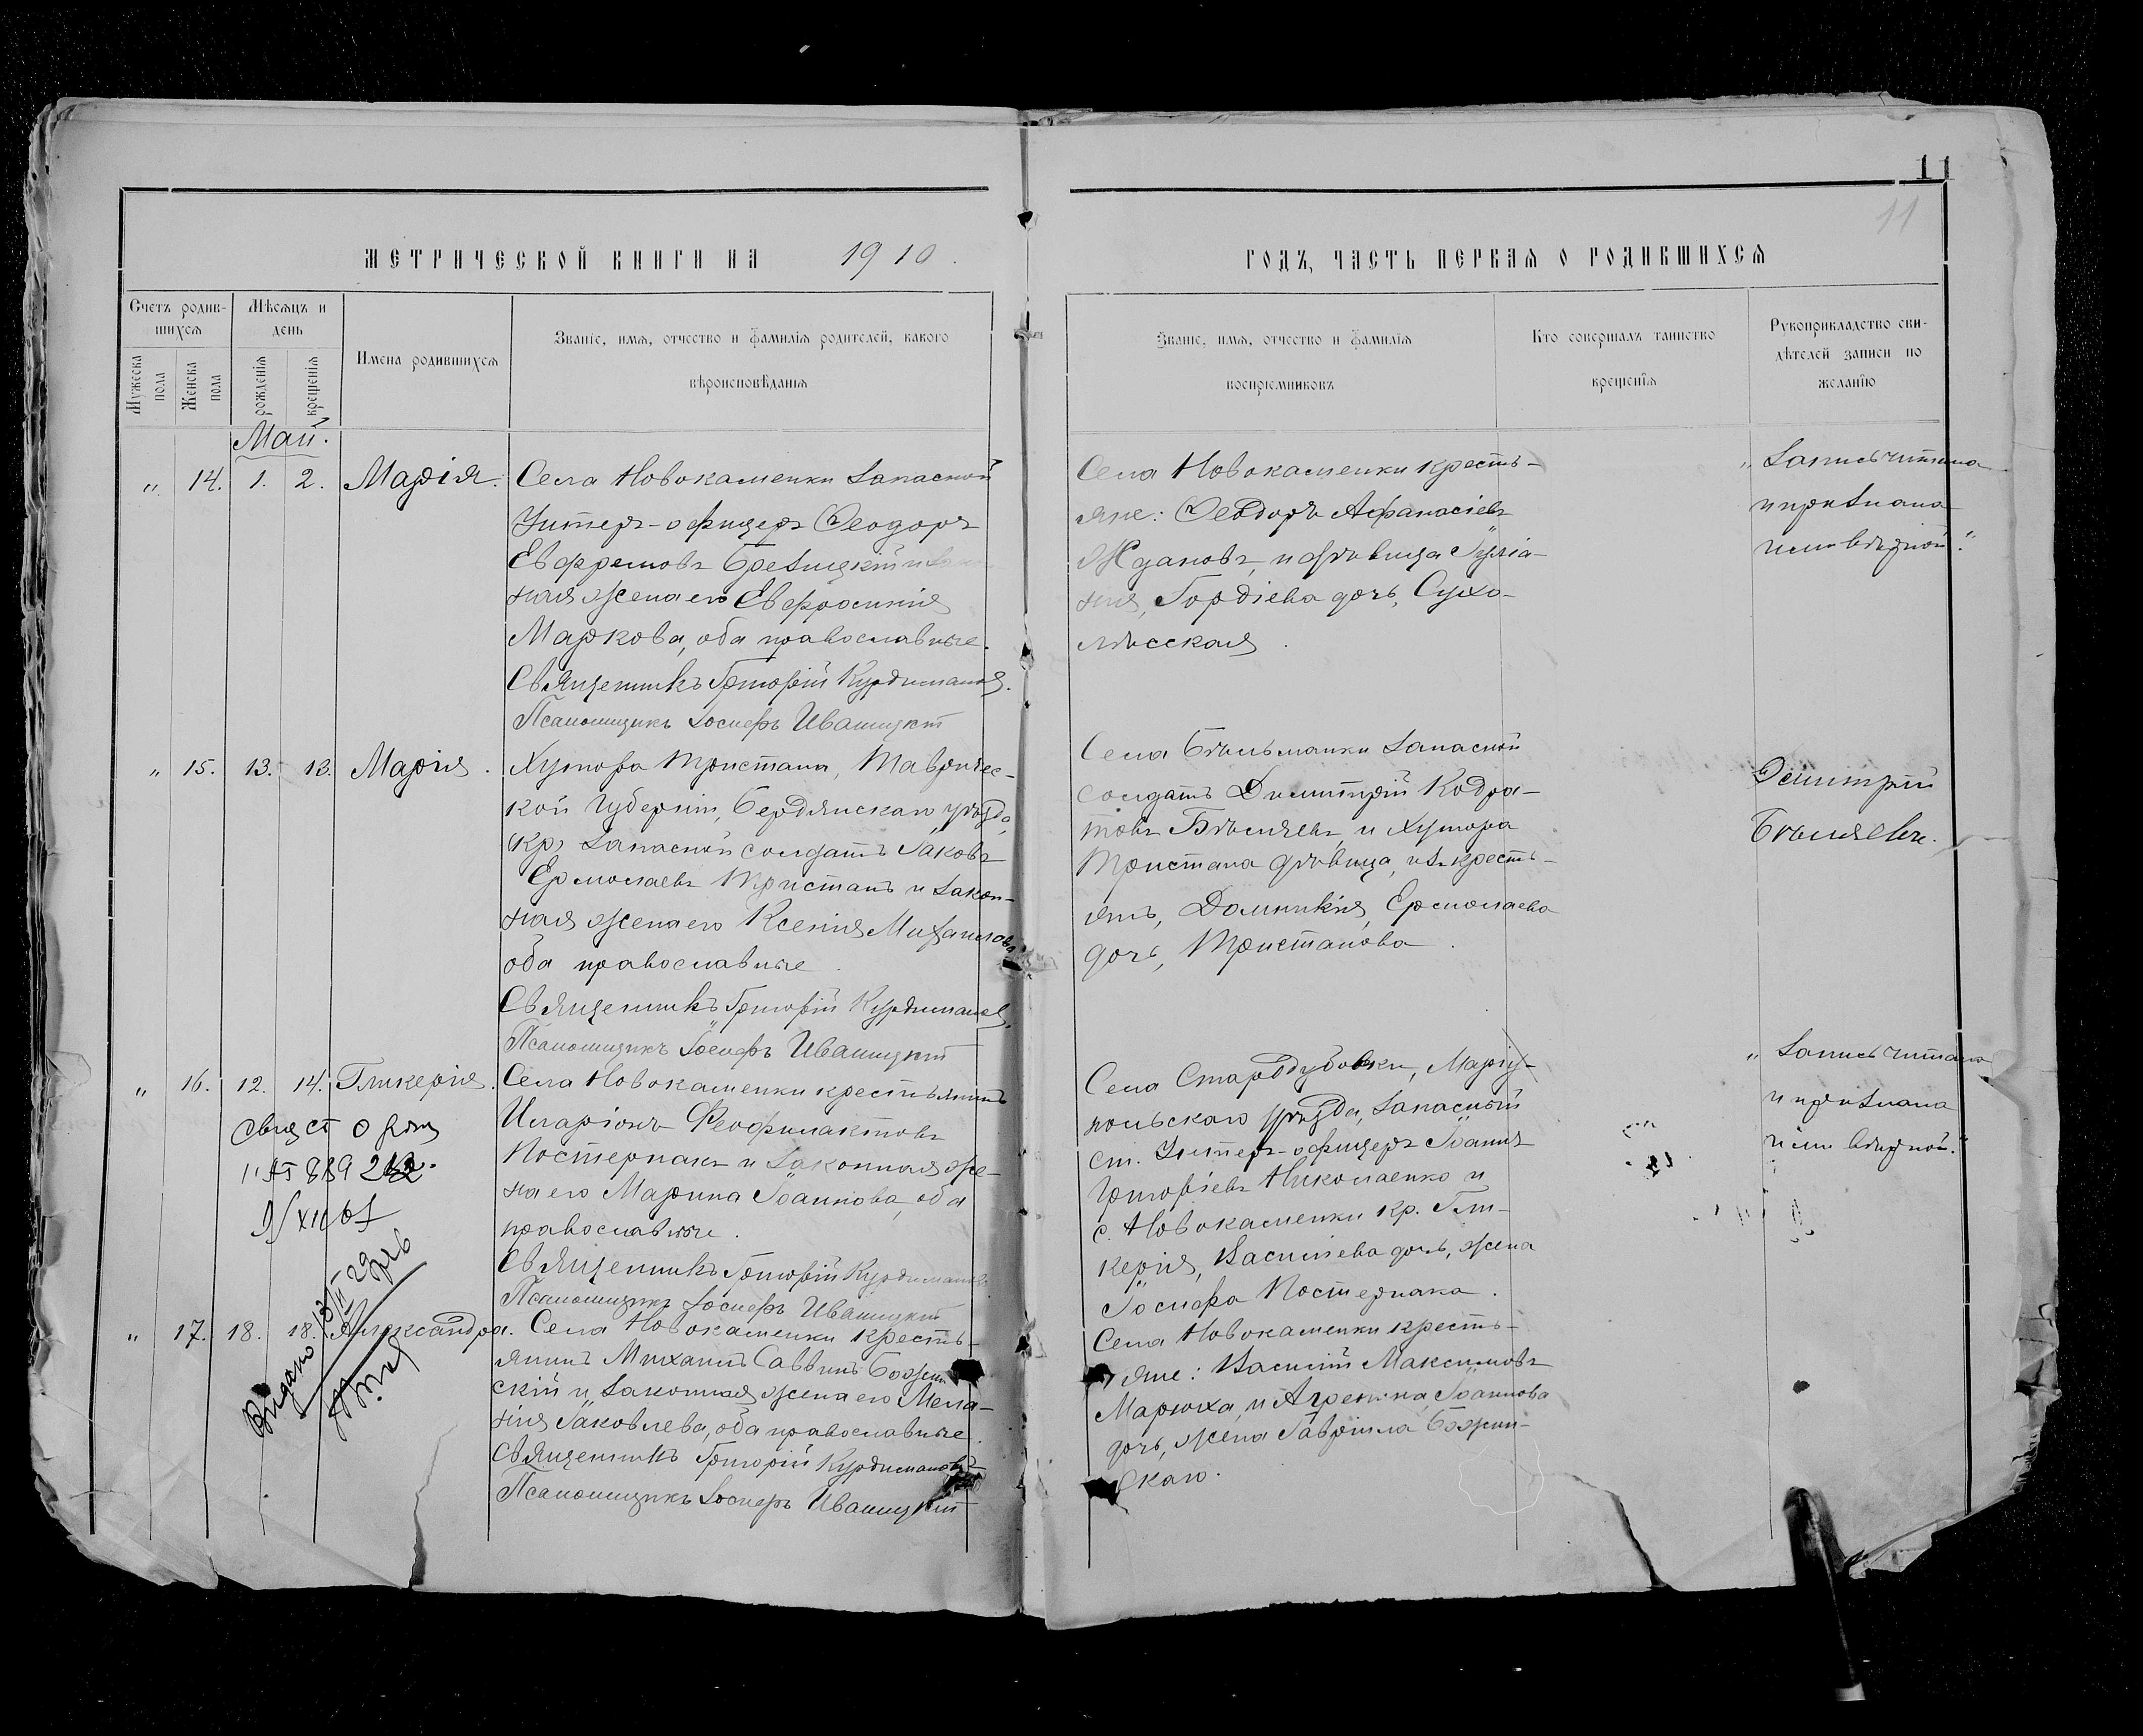 11
11
МЕТРИЧЕСКОЙ КНИГИ НА 1910.
ГОДЪ, ЧАСТЬ ПЕРВАЯ О РОДИВШИХСЯ
Счетъ родив-
шихся
Мужеска
пола
Женска
пола
Мѣсяцъ и
день
рожденія
крещенія
Имена родившихся
Званіе, имя, отчество и фамилія родителей, какого
вѣроисповѣданія
Званіе, имя, отчество и фамилія
воспріемниковъ
Кто совершалъ таинство
крещенія
Рукоприкладство сви-
дѣтелей записи по
желанію
Май.
„ 14. 1. 2. Марія.
Села Новокаменки запасной
Унтеръ-офицеръ Ѳеодоръ
Евфремовъ Брезицкій и зако
ная жена его Евфросинія
Маркова, оба православные.
Священникъ Григорій Курдиманов.
Псаломщикъ Іосифъ Ивашицкій
Села Новокаменки кресть-
яне: Ѳеодоръ Афанасіевъ
Ждановъ, и дѣвица Іуліа-
нія, Гордіева дочь, Сухо-
лѣсская.
„ Запись читана
и признана
ими вѣрной."
„ 15. 13. 13. Марія.
Хутора Тристана, Тавричес-
кой Губерніи, Бердянскаго уѣзда,
кр. запасной солдатъ Іаковъ
Ермолаевъ Тристанъ и закон-
ная жена его Ксенія Михаилова
оба православные.
Священникъ Григорій Курдиманов.
Псаломщикъ Іосифъ Ивашицкій
Села Бѣльманки запасной
солдатъ Димитрій Кодра-
товъ Бѣляевъ, и Хутора
Тристана дѣвица, изъ кресть-
янъ, Домникія, Ермолаева
дочь, Тристанова.
Дмитрій
Бѣляевъ.
„ 16. 12. 14. Гликерія.
Села Новокаменки крестьянинъ
Иларіонъ Ѳеофилактовъ
Постернакъ и законная же-
на его Марина Іоаннова, оба
православные.
Священникъ Григорій Курдиманов
Псаломщикъ Іосифъ Ивашицкій
Села Стародубовки, Маріу-
польскаго уѣзда, запасный
ст. Унтеръ-офицеръ Іоаннъ
Григоріевъ Николаенко и
с. Новокаменки кр. Гли-
керія, Васильева дочь, жена
Іосифа Постернака.
„ Запись читана
и признана
ими вѣрной."
„ 17. 18. 18. Александра.
Села Новокаменки кресть-
янинъ Михаилъ Саввинъ Божин
скій и законная жена его Мела-
нія Іаковлева, оба православные.
Священникъ Григорій Курдиманов
Псаломщикъ Іосифъ Ивашицкій
Села Новокаменки кресть-
яне: Василій Максимовъ
Марюха, и Агрепина, Іоаннова
дочь, жена Гавріила Божин-
скаго.